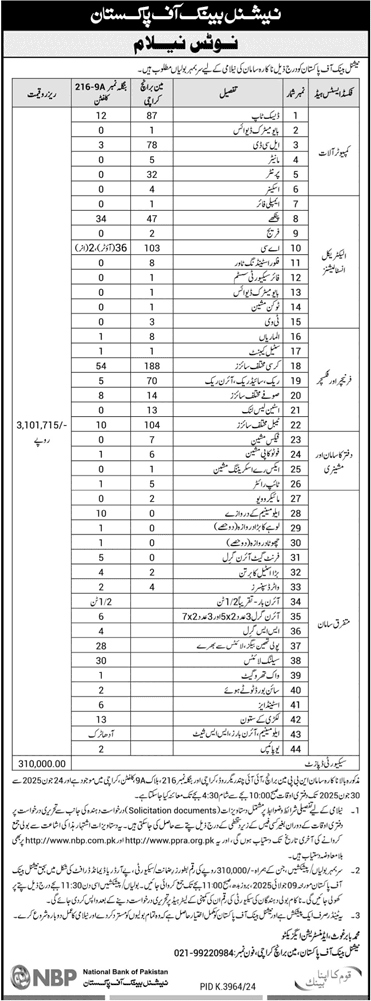 نیشنل بینک آف پاکستان
نوٹس نیلام
نیشنل بینک آف پاکستان کو درج ذیل ناکارہ سامان کی نیلامی کے لیے سربمہر بولیاں مطلوب ہیں۔
فکسڈ ایسٹس ہیڈ نمبر شمار تفصیل مین برانچ کراچی بنگلہ نمبر 216-9A کلفٹن ریزرو قیمت
کمپیوٹر آلات
1 ڈیسک ٹاپ 87 12
2 بایومیٹرک ڈیوائس 1 0
3 ایل سی ڈی 78 3
4 مانیٹر 5 0
5 پرنٹر 32 0
6 اسکینر 4 0
الیکٹریکل انسٹالیشنز
7 ایمپلی فائر 1 0
8 پنکھے 47 34
9 فریج 2 0
10 اے سی 103 36(آؤٹر)،2(انر)
11 فلور اسٹینڈنگ ٹاور 8 0
12 فائر سیکیورٹی سسٹم 1 0
13 بایومیٹرک ڈیوائس 1 0
14 ٹوکن مشین 1 0
15 ٹی وی 3 0
فرنیچر اور فکسچر
16 الماریاں 8 1
17 سٹیل کیبنٹ 1 1
18 کرسی مختلف سائزز 188 54
19 ریک، سائیڈ ریک، آئرن ریک 70 5
20 صوفے مختلف سائزز 14 8
21 اسٹین لیس لنک 13 0
22 ٹیبل مختلف سائزز 104 10
3,101,715/- روپے
دفتر کا سامان اور مشینری
23 فیکس مشین 7 0
24 فوٹو کاپی مشین 6 1
25 ایکس رے اسکریننگ مشین 1 0
26 ٹائپ رائٹر 5 1
متفرق سامان
27 مائیکروویو 2 0
28 ایلومینیم کے دروازے 0 10
29 لوہے کا بڑا دروازہ (دو حصے) 0 1
30 چھوٹا دروازہ (دو حصے) 0 1
31 فرنٹ گیٹ آئرن گرل 0 5
32 بڑا اسٹیل کا برتن 2 4
33 واٹر ڈسپنسرز 4 2
34 آئرن بار - تقریباً 1/2 ٹن 1/2 ٹن
35 آئرن گرل 3 عدد 5x2 اور 3 عدد 7x2 6
36 ایس ایس گرل 4
37 پولی تھین بیگز، لائٹس سے بھرے 28
38 سیلنگ لائٹس 30
39 واک تھرو گیٹ 1
40 سائن بورڈ ٹوٹے ہوئے 2
41 اسٹینڈیز 6
42 لکڑی کے ستون 13
43 ایلومینیم، آئرن بارز، ایس ایس شیٹ آدھا ٹرک
44 یو پی ایس 2
سیکیورٹی ڈپازٹ 310,000.00
مذکورہ بالا ناکارہ سامان این بی پی مین برانچ، آئی آئی چندریگر روڈ، کراچی اور بنگلہ نمبر 216، بلاک 9A کلفٹن، کراچی میں موجود ہے اور 24 جون 2025 سے
30 جون 2025 تک دفتری اوقات صبح 10:00 بجے سے شام 4:30 بجے تک معائنہ کیا جا سکتا ہے۔
1۔ نیلامی کے لیے تفصیلی شرائط و ضوابط پر مشتمل دستاویزات (Solicitation documents) درخواست دہندہ کی جانب سے تحریری درخواست پر
دفتری اوقات کے دوران بغیر کسی فیس کے زیر دستخطی کے درج ذیل پتے سے حاصل کی جا سکتی ہیں۔ یہ دستاویزات اشتہار ہذا کی اشاعت سے بولی جمع
کروانے کی آخری تاریخ تک دستیاب ہوں گی، اور یہ http://www.ppra.org.pk اور http://www.nbp.com.pk پر بھی
بلا معاوضہ دستیاب ہیں۔
2۔ سربمہر بولیاں/پیشکشیں، جن کے ہمراہ 310,000/- روپے کی رقم بطور زرِ ضمانت/سیکیورٹی، پے آرڈر یا ڈیمانڈ ڈرافٹ کی شکل میں بحق نیشنل بینک
آف پاکستان مورخہ 09 جولائی 2025، بروز بدھ، صبح 11:00 بجے تک جمع کروائی جائیں۔ بولیاں/پیشکشیں اسی دن 11:30 بجے درج ذیل پتے پر
کھولی جائیں گی۔
محمد بابر غوث، ایڈمنسٹریشن ایگزیکٹو
نیشنل بینک آف پاکستان، کراچی، فون نمبر: 021-99220984
NBP National Bank of Pakistan
نیشنل بینک آف پاکستان
PID K.3964/24
قوم کا اپنا بینک